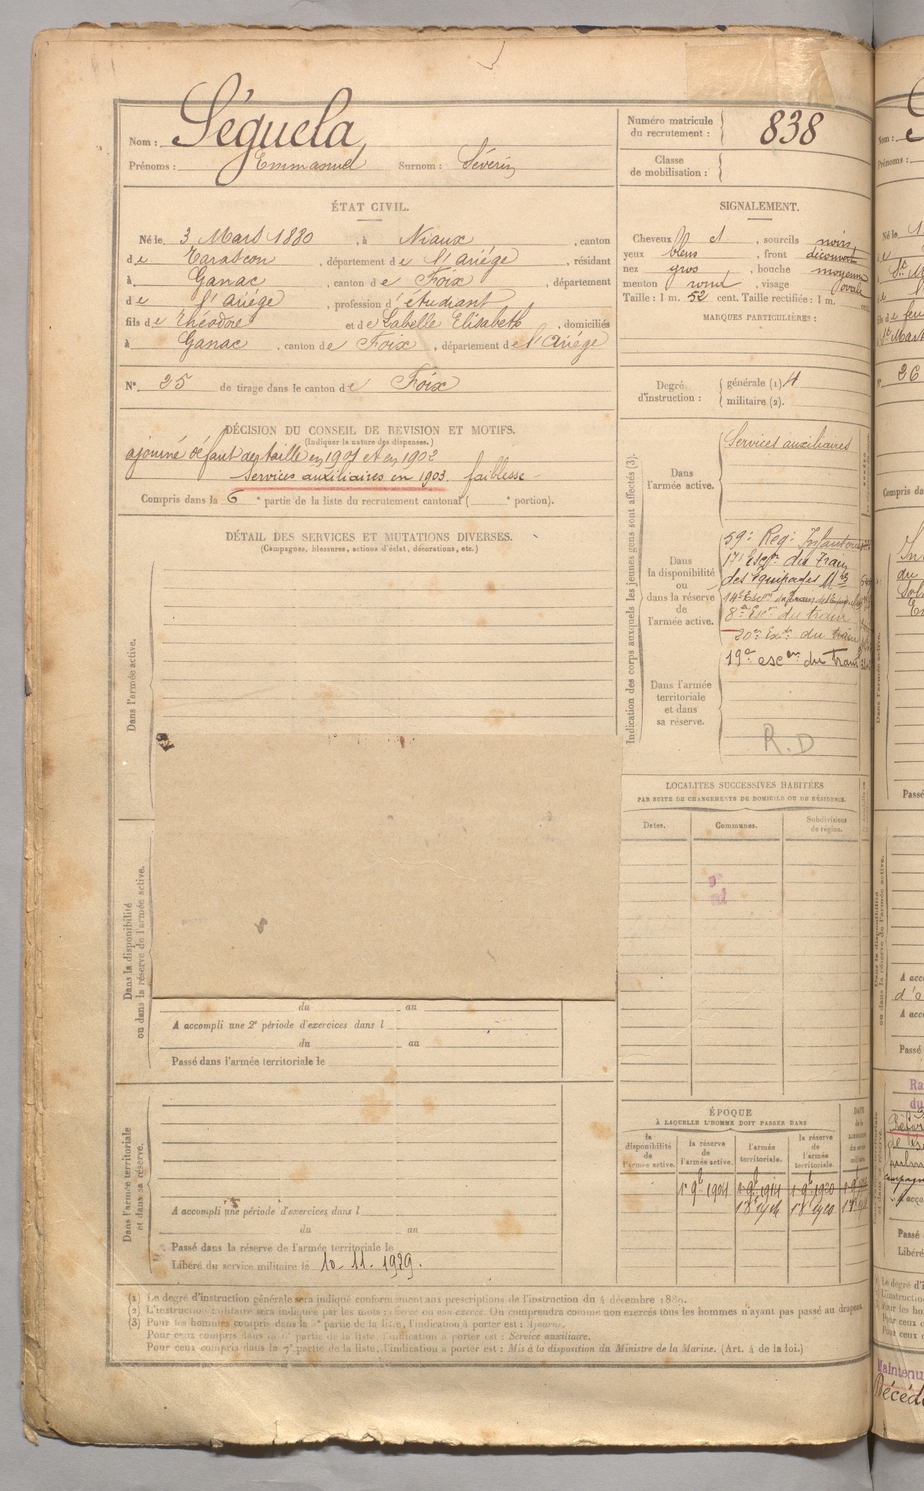 Nom : Séguela
Prénoms : Emmanuel Surnom : Séverin
Numéro matricule du recrutement : 838
Classe de mobilisation :
ÉTAT CIVIL.
Né le 3 Mars 1880, à Niaux, canton
de Tarascon, département de l'Ariège, résidant
à Ganac, canton de Foix, département
de l'Ariège, profession d'étudiant
fils de Théodore et de Labelle Elisabeth, domiciliés
à Ganac, canton de Foix, département de l'Ariège
N° 25 de tirage dans le canton de Foix
SIGNALEMENT.
Cheveux bl ct, sourcils noirs
yeux bleus, front découvert
nez gros, bouche moyenne
menton rond, visage ovale
Taille : 1 m. 52 cent. Taille rectifiée : 1 m.
MARQUES PARTICULIÈRES :
Degré d'instruction : générale (1) 4
militaire (2).
DÉCISION DU CONSEIL DE REVISION ET MOTIFS.
(Indiquer la nature des dispenses.)
ajourné défaut de taille en 1901 et en 1902
Services auxiliaires en 1903. faiblesse
Compris dans la 6e partie de la liste du recrutement cantonal ( e portion).
DÉTAIL DES SERVICES ET MUTATIONS DIVERSES.
(Campagnes, blessures, actions d'éclat, décorations, etc.)
Dans l'armée active.
Dans la disponibilité ou dans la réserve de l'armée active.
du au
A accompli une 2e période d'exercices dans l
du au
Passé dans l'armée territoriale le
Dans l'armée territoriale et dans sa réserve.
A accompli une période d'exercices dans l
du au
Passé dans la réserve de l'armée territoriale le
Libéré du service militaire le 10-11-1929.
Indication des corps auxquels les jeunes gens sont affectés (3).
Dans l'armée active.
Services auxiliaires
Dans la disponibilité ou dans la réserve de l'armée active.
59e Reg. Infanterie
17e Escon du train
des équipages
8e Eson du train
20e Eson du train
19e escon du train
Dans l'armée territoriale et dans sa réserve.
R.D
LOCALITÉS SUCCESSIVES HABITÉES
PAR SUITE DE CHANGEMENTS DE DOMICILE OU DE RÉSIDENCE.
Dates. Communes. Subdivisions de région.
ÉPOQUE
À LAQUELLE L'HOMME DOIT PASSER DANS
la disponibilité de l'armée active. la réserve de l'armée active. l'armée territoriale. la réserve de l'armée territoriale.
1er 9b 1904 1 9b 1914 1 9b 1920
(1) Le degré d'instruction générale sera indiqué conformément aux prescriptions de l'instruction du 4 décembre 1889.
(2) L'instruction militaire sera indiquée par les mots : exercé ou non exercé. On comprendra comme non exercés tous les hommes n'ayant pas passé au drapeau.
(3) Pour les hommes compris dans la 5e partie de la liste, l'indication à porter est : Ajourné.
Pour ceux compris dans la 6e partie de la liste, l'indication à porter est : Service auxiliaire.
Pour ceux compris dans la 7e partie de la liste, l'indication à porter est : Mis à la disposition du Ministre de la Marine. (Art. 4 de la loi.)